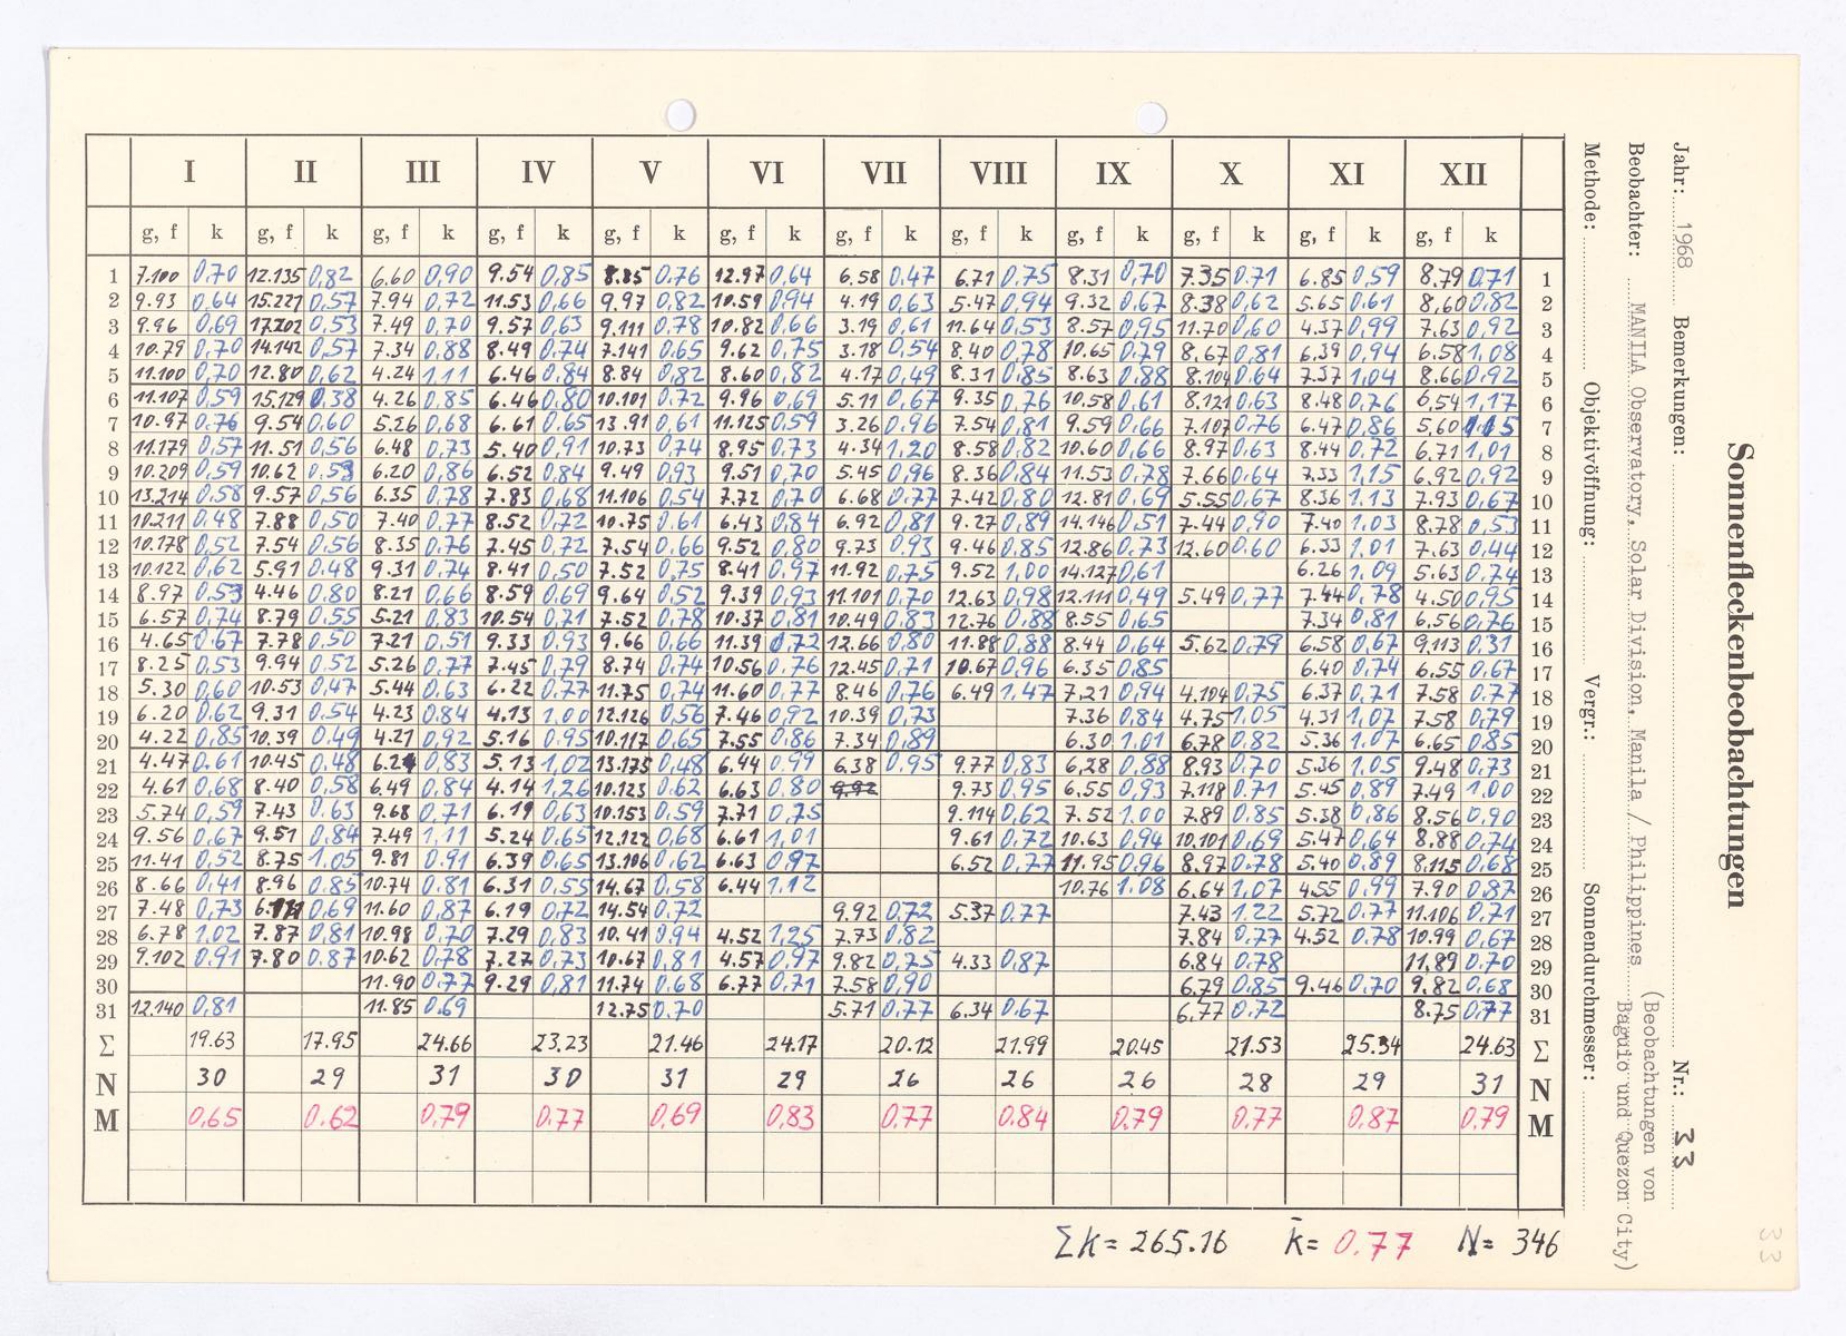 I II III IV V VI VII VIII IX X XI XII
g, f k g, f k g, f k g, f k g, f k g, f k g, f k g, f k g, f k g, f k g, f k g, f k
1 7.100 0,70 12.135 0,82 6.60 0,90 9.54 0,85 8.85 0,76 12.97 0,64 6.58 0,47 6.71 0,75 8.31 0,70 7.35 0,71 6.85 0,59 8.79 0,71 1
2 9.93 0,64 15.227 0,57 7.94 0,72 11.53 0,66 9.97 0,82 10.59 0,94 4.19 0,63 5.47 0,94 9.32 0,67 8.38 0,62 5.65 0,61 8,60 0,82 2
3 9.96 0,69 17.202 0,53 7.49 0,70 9.57 0,63 9.111 0,78 10.82 0,66 3.19 0,61 11.64 0,53 8.57 0,95 11.70 0,60 4.37 0,99 7.63 0,92 3
4 10.79 0,70 14.142 0,57 7.34 0,88 8.49 0,74 7.141 0,65 9.62 0,75 3.18 0,54 8.40 0,78 10.65 0,79 8,67 0,81 6.39 0,94 6.58 1,08 4
5 11.100 0,70 12.80 0,62 4.24 1,11 6.46 0,84 8.84 0,82 8.60 0,82 4.17 0,49 8.31 0,85 8.63 0,88 8.104 0,64 7.37 1,04 8.66 0,92 5
6 11.107 0,59 15.129 0,38 4.26 0,85 6.46 0,80 10.101 0,72 9.96 0,69 5.11 0,67 9.35 0,76 10.58 0,61 8.121 0,63 8.48 0,76 6,54 1,17 6
7 10.97 0,76 9.54 0,60 5.26 0,68 6.61 0,65 13.91 0,61 11.125 0,59 3.26 0,96 7.54 0,81 9.59 0,66 7.107 0,76 6.47 0,86 5,60 1,15 7
8 11.179 0,57 11.51 0,56 6.48 0,73 5.40 0,91 10.73 0,74 8.95 0,73 4.34 1,20 8.58 0,82 10.60 0,66 8.97 0,63 8.44 0,72 6,71 1,01 8
9 10.209 0,59 10.62 0,53 6.20 0,86 6.52 0,84 9.49 0,93 9.51 0,70 5.45 0,96 8.36 0,84 11.53 0,78 7.66 0,64 7.33 1,15 6,92 0,92 9
10 13.214 0,58 9.57 0,56 6.35 0,78 7.83 0,68 11.106 0,54 7.72 0,70 6.68 0,77 7.42 0,80 12.81 0,69 5.55 0,67 8.36 1.13 7.93 0,67 10
11 10.211 0,48 7.88 0,50 7.40 0,77 8.52 0,72 10.75 0,61 6.43 0,84 6.92 0,81 9.27 0,89 14.146 0,51 7.44 0,90 7.40 1,03 8.78 0,53 11
12 10.178 0,52 7.54 0,56 8.35 0,76 7.45 0,72 7.54 0,66 9.52 0,80 9.73 0.93 9.46 0,85 12.86 0,73 12.60 0,60 6.33 1,01 7.63 0,44 12
13 10.122 0,62 5.91 0,48 9.31 0,74 8.41 0,50 7.52 0,75 8.41 0,97 11.92 0,75 9.52 1,00 14.127 0,61 6.26 1,09 5.63 0,74 13
14 8.97 0,53 4.46 0,80 8.21 0,66 8.59 0,69 9.64 0,52 9.39 0,93 11.101 0,70 12.63 0,98 12.111 0,49 5.49 0,77 7.44 0,78 4.50 0,95 14
15 6.57 0,74 8.79 0,55 5.21 0,83 10.54 0,71 7.52 0,78 10.37 0,81 10.49 0,83 12.76 0,88 8.55 0,65 7.34 0,81 6,56 0,76 15
16 4.65 0,67 7.78 0,50 7.21 0,51 9.33 0,93 9.66 0,66 11.39 0,72 12.66 0,80 11.88 0,88 8.44 0,64 5.62 0,79 6.58 0,67 9,113 0.31 16
17 8.25 0,53 9.94 0,52 5.26 0,77 7.45 0,79 8.74 0,74 10.56 0,76 12.45 0,71 10.67 0,96 6.35 0,85 6.40 0,74 6,55 0,67 17
18 5.30 0,60 10.53 0,47 5.44 0,63 6.22 0,77 11.75 0,74 11.60 0,77 8.46 0,76 6.49 1,47 7.21 0,94 4.104 0,75 6.37 0,71 7.58 0,77 18
19 6.20 0,62 9.31 0,54 4.23 0,84 4.13 1,00 12.126 0,56 7.46 0,92 10.39 0,73 7.36 0,84 4.75 1,05 4.31 1,07 7.58 0,79 19
20 4.22 0,85 10.39 0,49 4.21 0,92 5.16 0.95 10.117 0,65 7.55 0,86 7.34 0,89 6.30 1,01 6.78 0,82 5.36 1,07 6.65 0,85 20
21 4.47 0,61 10.45 0,48 6.24 0,83 5.13 1,02 13.175 0,48 6.44 0,99 6.38 0,95 9.77 0,83 6,28 0,88 8.93 0,70 5.36 1,05 9.48 0,73 21
22 4.61 0,68 8.40 0,58 6,49 0,84 4.14 1,26 10.123 0,62 6.63 0,80 9,92 9.73 0,95 6,55 0,93 7.118 0.71 5.45 0,89 7.49 1,00 22
23 5.74 0,59 7.43 0,63 9.68 0,71 6.19 0,63 10.153 0,59 7.71 0,75 9.114 0,62 7.52 1.00 7.89 0,85 5.38 0,86 8,56 0,90 23
24 9.56 0,67 9.51 0,84 7.49 1,11 5.24 0,65 12.122 0,68 6.61 1,01 9.61 0,72 10.63 0,94 10.101 0,69 5.47 0,64 8,88 0,74 24
25 11.41 0,52 8.75 1,05 9.81 0.91 6.39 0,65 13.106 0,62 6.63 0,97 6.52 0,77 11.95 0,96 8.97 0,78 5.40 0,89 8,115 0,68 25
26 8.66 0,41 8.96 0,85 10.74 0,81 6.31 0,55 14.67 0,58 6.44 1,12 10.76 1,08 6,64 1,07 4.55 0,99 7.90 0,87 26
27 7.48 0,73 0,69 11.60 0,87 6.19 0,72 14.54 0,72 9.92 0,72 5.37 0,77 7.43 1,22 5.72 0,77 11.106 0,71 27
28 6.78 1,02 7.87 0,81 10.98 0,70 7.29 0,83 10.41 0,94 4.52 1,25 7.73 0,82 7.84 0,77 4.52 0,78 10.99 0,67 28
29 9.102 0,91 7.80 0,87 10.62 0,78 7.27 0,73 10.67 0,81 4.57 0,97 9.82 0,75 4.33 0,87 6.84 0,78 11.89 0,70 29
30 11.90 0,77 9.29 0,81 11.74 0,68 6.77 0,71 7.58 0,90 6.79 0,85 9.46 0,70 9.82 0,68 30
31 12.140 0,81 11.85 0,69 12.75 0.70 5.71 0,77 6.34 0,67 6,77 0,72 8.75 0,77 31
Σ 19.63 17.95 24.66 23.23 21.46 24.17 20.12 21.99 20.45 21.53 25.34 24.63 Σ
N 30 29 31 30 31 29 26 26 26 28 29 31 N
M 0,65 0.62 0,79 0.77 0,69 0,83 0.77 0.84 0.79 0.77 0.87 0.79 M
Σk = 265.16 k̄ = 0.77 N = 346
Sonnenfleckenbeobachtungen
Jahr: 1968 Bemerkungen: Nr.: 33
Beobachter: MANILA Observatory, Solar Division, Manila / Philippines (Beobachtungen von
Baguio und Quezon City)
Methode: Objektivöffnung: Vergr.: Sonnendurchmesser:
33